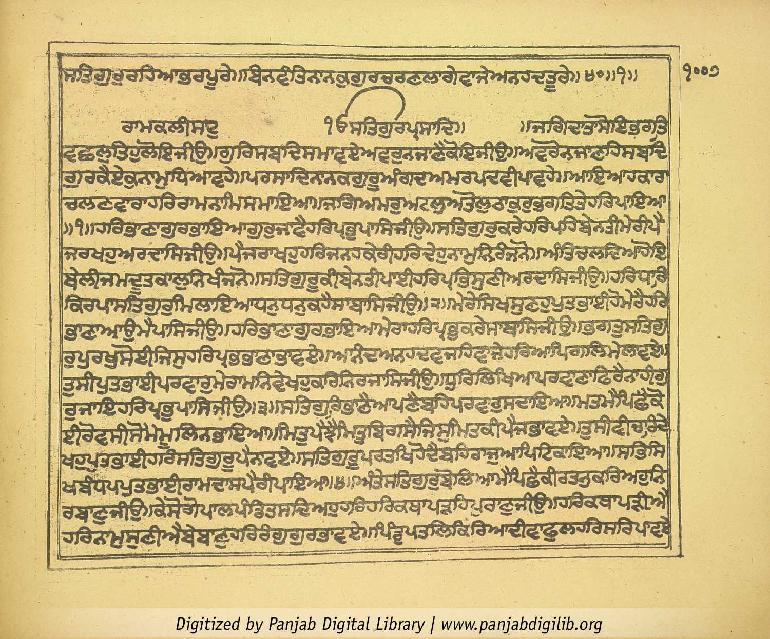 ਸਤਿਗੁਰੁਰਹਿਆਭਰਪੂਰੇ॥ਬਿਨਵੰਤਿਨਾਨਕੁਗੁਰਚਰਣਲਾਗੇਵਾਜੇਅਨਹਦਤੂਰੇ॥੪੦॥੧॥ ੧੦੦੭
ਰਾਮਕਲੀਸਦੁ ੴਸਤਿਗੁਰਪ੍ਰਸਾਦਿ॥ ॥ਜਗਿਦਾਤਾਸੋਇਭਗਤਿ
ਵਛਲੁਤਿਹੁਲੋਇਜੀਉ॥ਗੁਰਸਬਦਿਸਮਾਵਏਅਵਰੁਨਜਾਣੈਕੋਇਜੀਉ॥ਅਵਰੋਨਜਾਣਹਿਸਬਦਿ
ਗੁਰਕੈਏਕੁਨਾਮੁਧਿਆਵਹੇ॥ਪਰਸਾਦਿਨਾਨਕਗੁਰੂਅੰਗਦਪਰਮਪਦਵੀਪਾਵਹੇ॥ਆਇਆਹਕਾਰਾ
ਚਲਣਵਾਰਾਹਰਿਰਾਮਨਾਮਿਸਮਾਇਆ॥ਜਗਿਅਮਰੁਅਟਲੁਅਤੋਲੁਠਾਕੁਰੁਭਗਤਿਤੇਹਰਿਪਾਇਆ
॥੧॥ਹਰਿਭਾਣਾਗੁਰਭਾਇਆਗੁਰੁਜਾਵੈਹਰਿਪ੍ਰਭਪਾਸਿਜੀਉ॥ਸਤਿਗੁਰੁਕਰੇਹਰਿਪਹਿਬੇਨਤੀਮੇਰੀਪੈ
ਜਰਖਹੁਅਰਦਾਸਿਜੀਉ॥ਪੈਜਰਾਖਹੁਹਰਿਜਨਹਕੇਰੀਹਰਿਦੇਹੁਨਾਮੁਨਿਰੰਜਨੋ॥ਅੰਤਿਚਲਦਿਆਹੋਇ
ਬੇਲੀਜਮਦੂਤਕਾਲੁਨਿਖੰਜਨੋ॥ਸਤਿਗੁਰੂਕੀਬੇਨਤੀਪਾਈਹਰਿਪ੍ਰਭਿਸੁਣੀਅਰਦਾਸਿਜੀਉ॥ਹਰਿਧਾਰਿ
ਕਿਰਪਾਸਤਿਗੁਰੁਮਿਲਾਇਆਧਨੁਧਨੁਕਹੈਸਾਬਾਸਿਜੀਉ॥੨॥ਮੇਰੇਸਿਖਸੁਣਹੁਪੁਤਭਾਈਹੋਮੇਰੈਹਰਿ
ਭਾਣਾਆਉਮੈਪਾਸਿਜੀਉ॥ਹਰਿਭਾਣਾਗੁਰਭਾਇਆਮੇਰਾਹਰਿਪ੍ਰਭੁਕਰੇਸਾਬਾਸਿਜੀਉ॥ਭਗਤੁਸਤਿਗੁ
ਰੁਪੁਰਖੁਸੋਈਜਿਸੁਹਰਿਪ੍ਰਭਭਾਣਾਭਾਵਏ॥ਆਨੰਦਅਨਹਦਵਜਹਿਵਾਜੇਹਰਿਆਪਿਗਲਿਮੇਲਾਵਏ॥
ਤੁਸੀਪੁਤਭਾਈਪਰਵਾਰੁਮੇਰਾਮਨਿਵੇਖਹੁਕਰਿਨਿਰਜਾਸਿਜੀਉ॥ਧੁਰਿਲਿਖਿਆਪਰਵਾਣਾਫਿਰੈਨਾਹੀਗੁ
ਰੁਜਾਇਹਰਿਪ੍ਰਭਪਾਸਿਜੀਉ॥੩॥ਸਤਿਗੁਰਿਭਾਣੈਆਪਣੈਬਹਿਪਰਵਾਰੁਸਦਾਇਆ॥ਮਤਮੈਪਿਛੈਕੋ
ਈਰੋਵਸੀਸੋਮੈਮੂਲਿਨਭਾਇਆ॥ਮਿਤੁਪੈਝੈਮਿਤੁਬਿਗਸੈਜਿਸੁਮਿਤਕੀਪੈਜਭਾਵਏ॥ਤੁਸੀਵੀਚਾਰਿਦੇ
ਖਹੁਪੁਤਭਾਈਹਰਿਸਤਿਗੁਰੂਪੈਨਾਵਏ॥ਸਤਿਗੁਰੂਪਰਤਖਿਹੋਦੈਬਹਿਰਾਜੁਆਪਿਟਿਕਾਇਆ॥ਸਭਿਸਿ
ਖਬੰਧਪਪੁਤਭਾਈਰਾਮਦਾਸਪੈਰੀਪਾਇਆ॥੪॥ਅੰਤੇਸਤਿਗੁਰੁਬੋਲਿਆਮੈਪਿਛੈਕੀਰਤਨੁਕਰਿਅਹੁਨਿ
ਰਬਾਣੁਜੀਉ॥ਕੇਸੋਗੋਪਾਲਪੰਡਿਤਸਦਿਅਹੁਹਰਿਹਰਿਕਥਾਪੜਹਿਪੁਰਾਣੁਜੀਉ॥ਹਰਿਕਥਾਪੜੀਐ
ਹਰਿਨਾਮੁਸੁਣੀਐਬੇਬਾਣੁਹਰਿਰੰਗੁਗੁਰਭਾਵਏ॥ਪਿੰਡੁਪਤਲਿਕਿਰਿਆਦੀਵਾਫੁਲਹਰਿਸਰਿਪਾਵਏ
Digitized by Panjab Digital Library | www.panjabdigilib.org